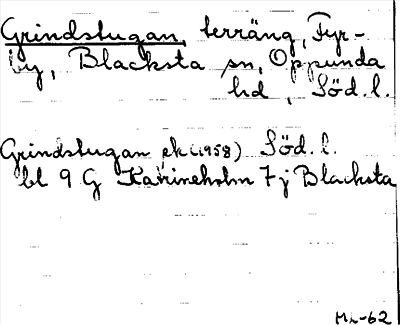 Grindstugan, terräng, Fyr-
by, Blacksta sn, Oppunda
hd, Söd. l.
Grindstugan ek (1958) Söd. l.
bl 9 G Katrineholm 7 j Blacksta
ML-62